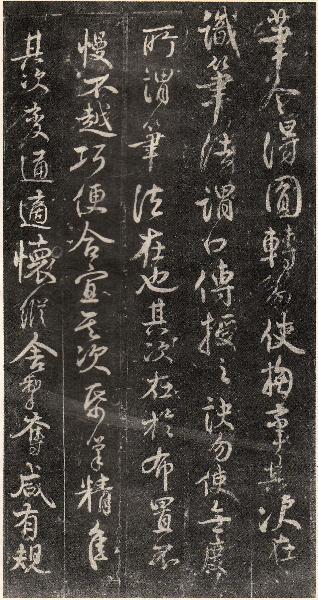 筆令得圓轉勿使拘攣其次在
識筆法謂口傳授之訣勿使無度
所謂筆法在也其次在於布置不
慢不越巧便合宜其次帋筆精佳
其次變通適懷縱舍掣奪咸有規